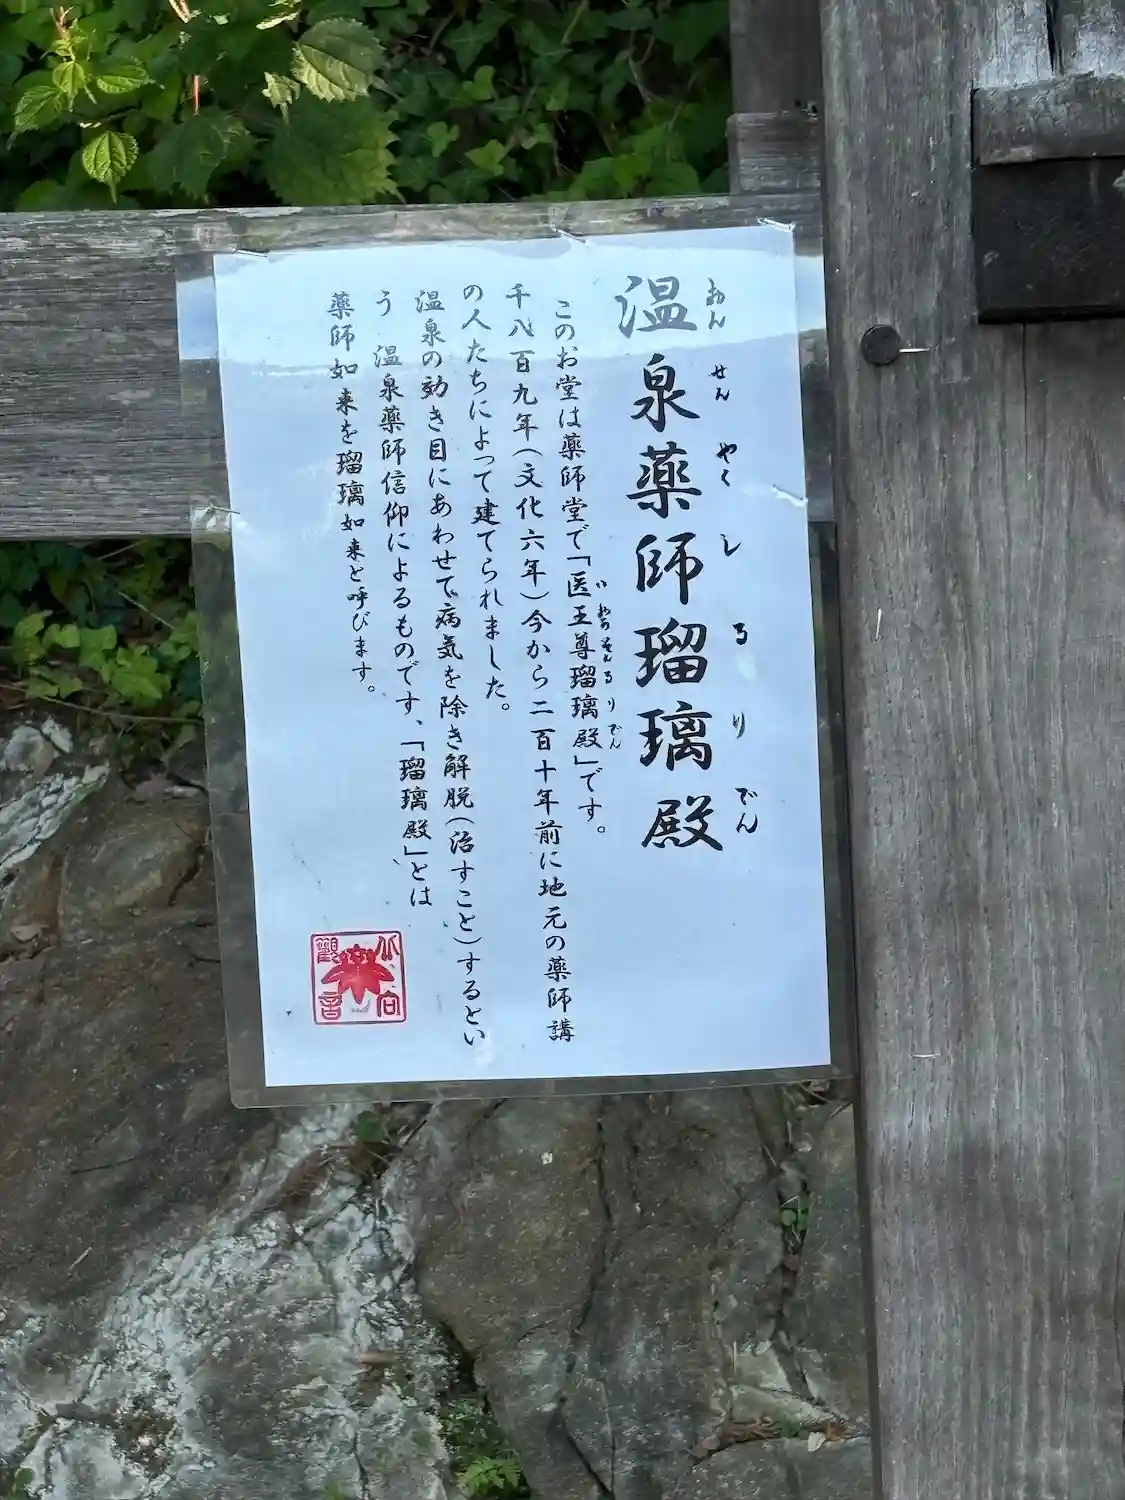 温泉薬師瑠璃殿
おん せん やく し る り でん
このお堂は薬師堂で「医王尊瑠璃殿」です。
い おうそんるりでん
千八百九年(文化六年)今から二百十年前に地元の薬師講
の人たちによって建てられました。
温泉の効き目にあわせて病気を除き解脱(治すこと)するとい
う 温泉薬師信仰によるものです、「瑠璃殿」とは
薬師如来を瑠璃如来と呼びます。
北向
觀音